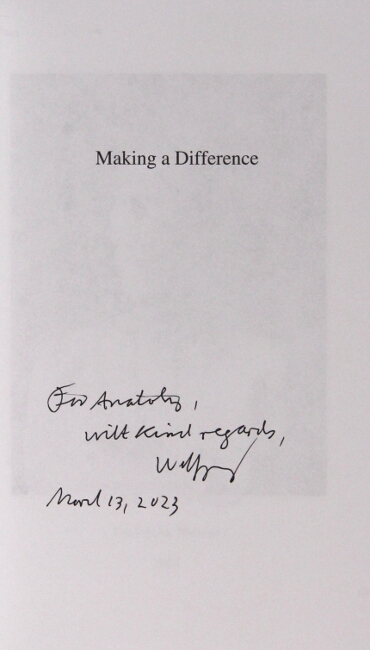 Making a Difference
For Anatoly,
with kind regards,
March 13, 2023